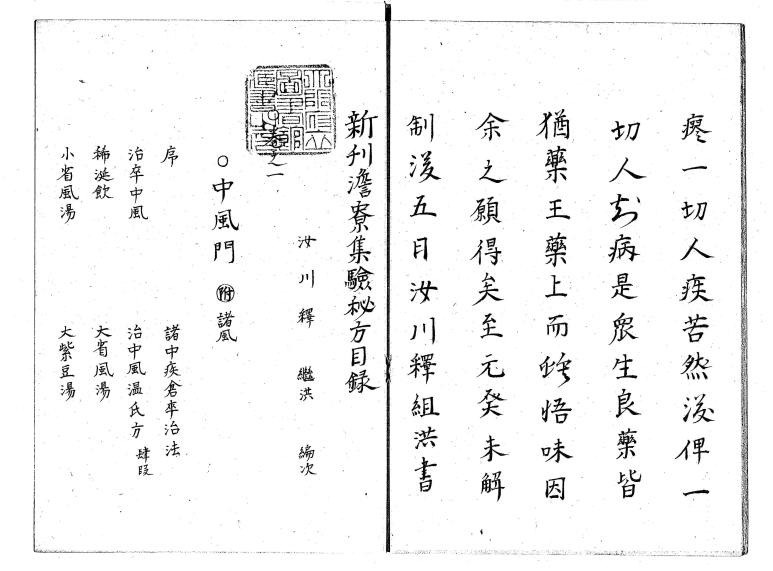 瘳一切人疾苦然後俾一
切人知病是衆生良藥皆
猶藥王藥上而能悟味因
余之願得矣至元癸未解
制後五日汝川釋組洪書
新刋澹寮集驗秘方目録
卷之一
汝川釋 繼洪 編次
○中風門 附諸風
序 諸中疾倉卒治法
治卒中風 治中風温氏方 肆段
稀涎飲 大省風湯
小省風湯 大紫豆湯